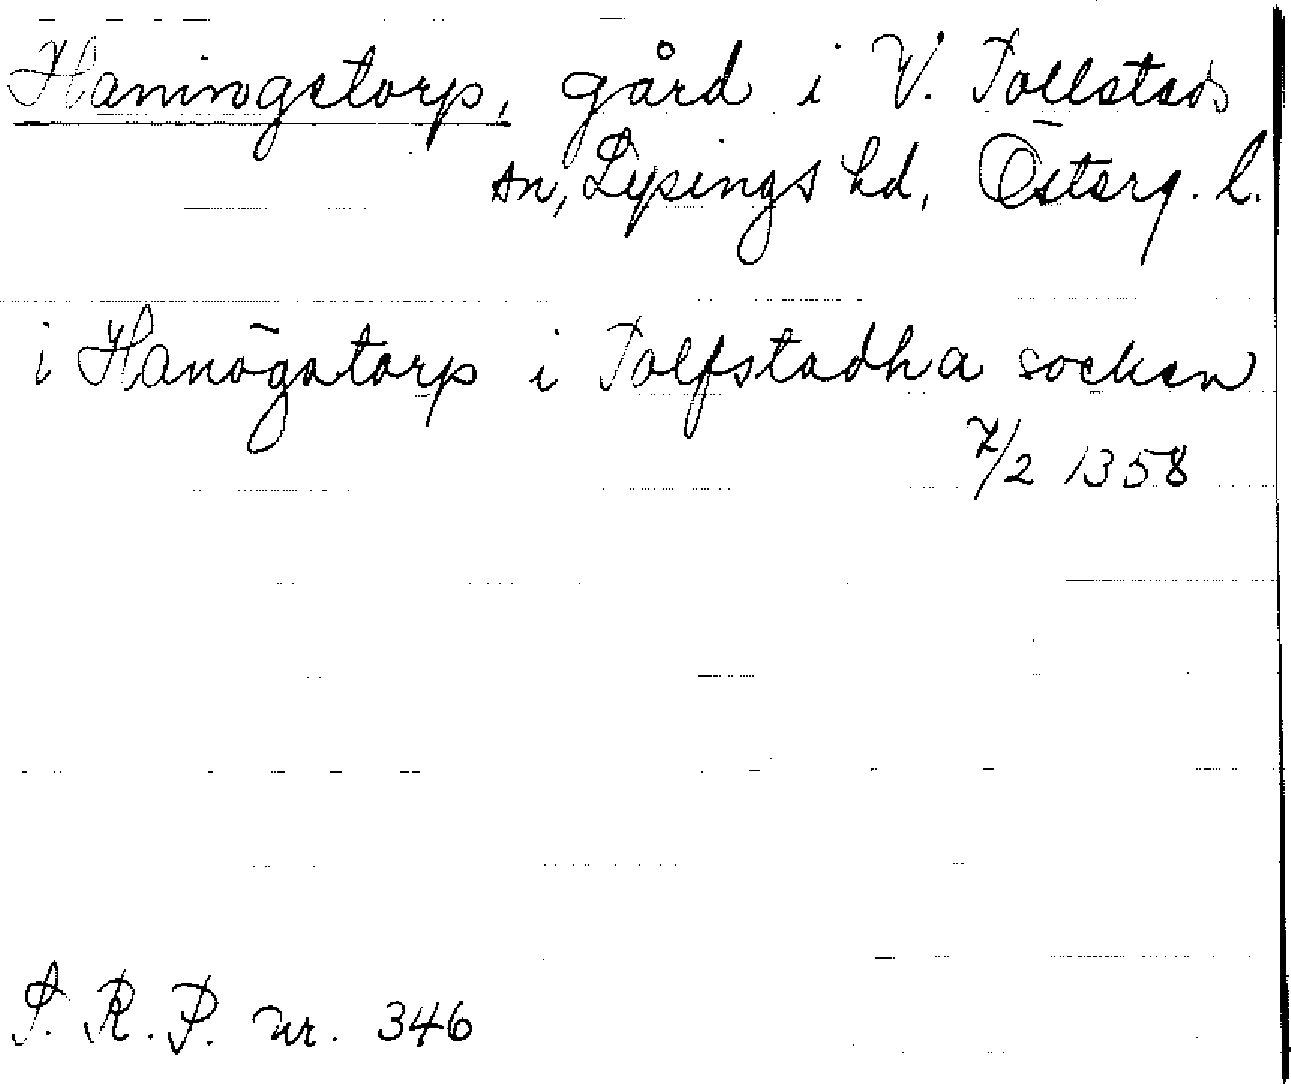 Haningstorp, gård i V. Tollstads
sn, Lysings hd, Österg. l.
i Hanögstorp i Tolfstadha socken
7/2 1358
S. R. P. nr. 346